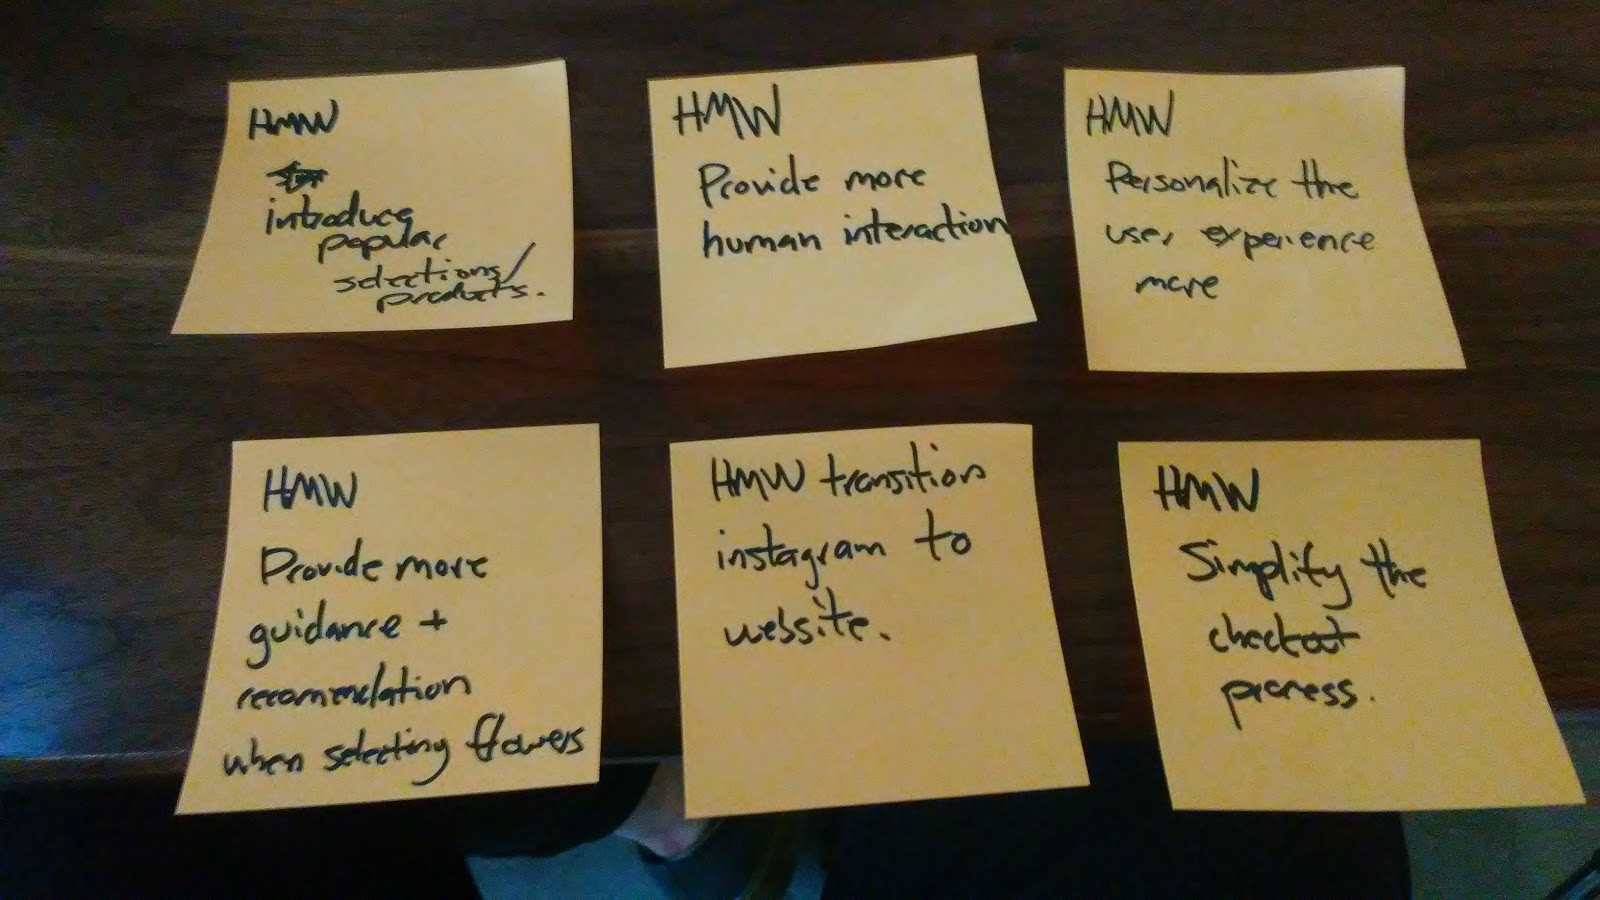 HMW
introduce
popular
selections/
products.
HMW
Provide more
human interaction
HMW
Personalize the
user experience
more
HMW
Provide more
guidance +
recomendation
when selecting flowers
HMW transition
instagram to
website.
HMW
Simplify the
checkout
process.